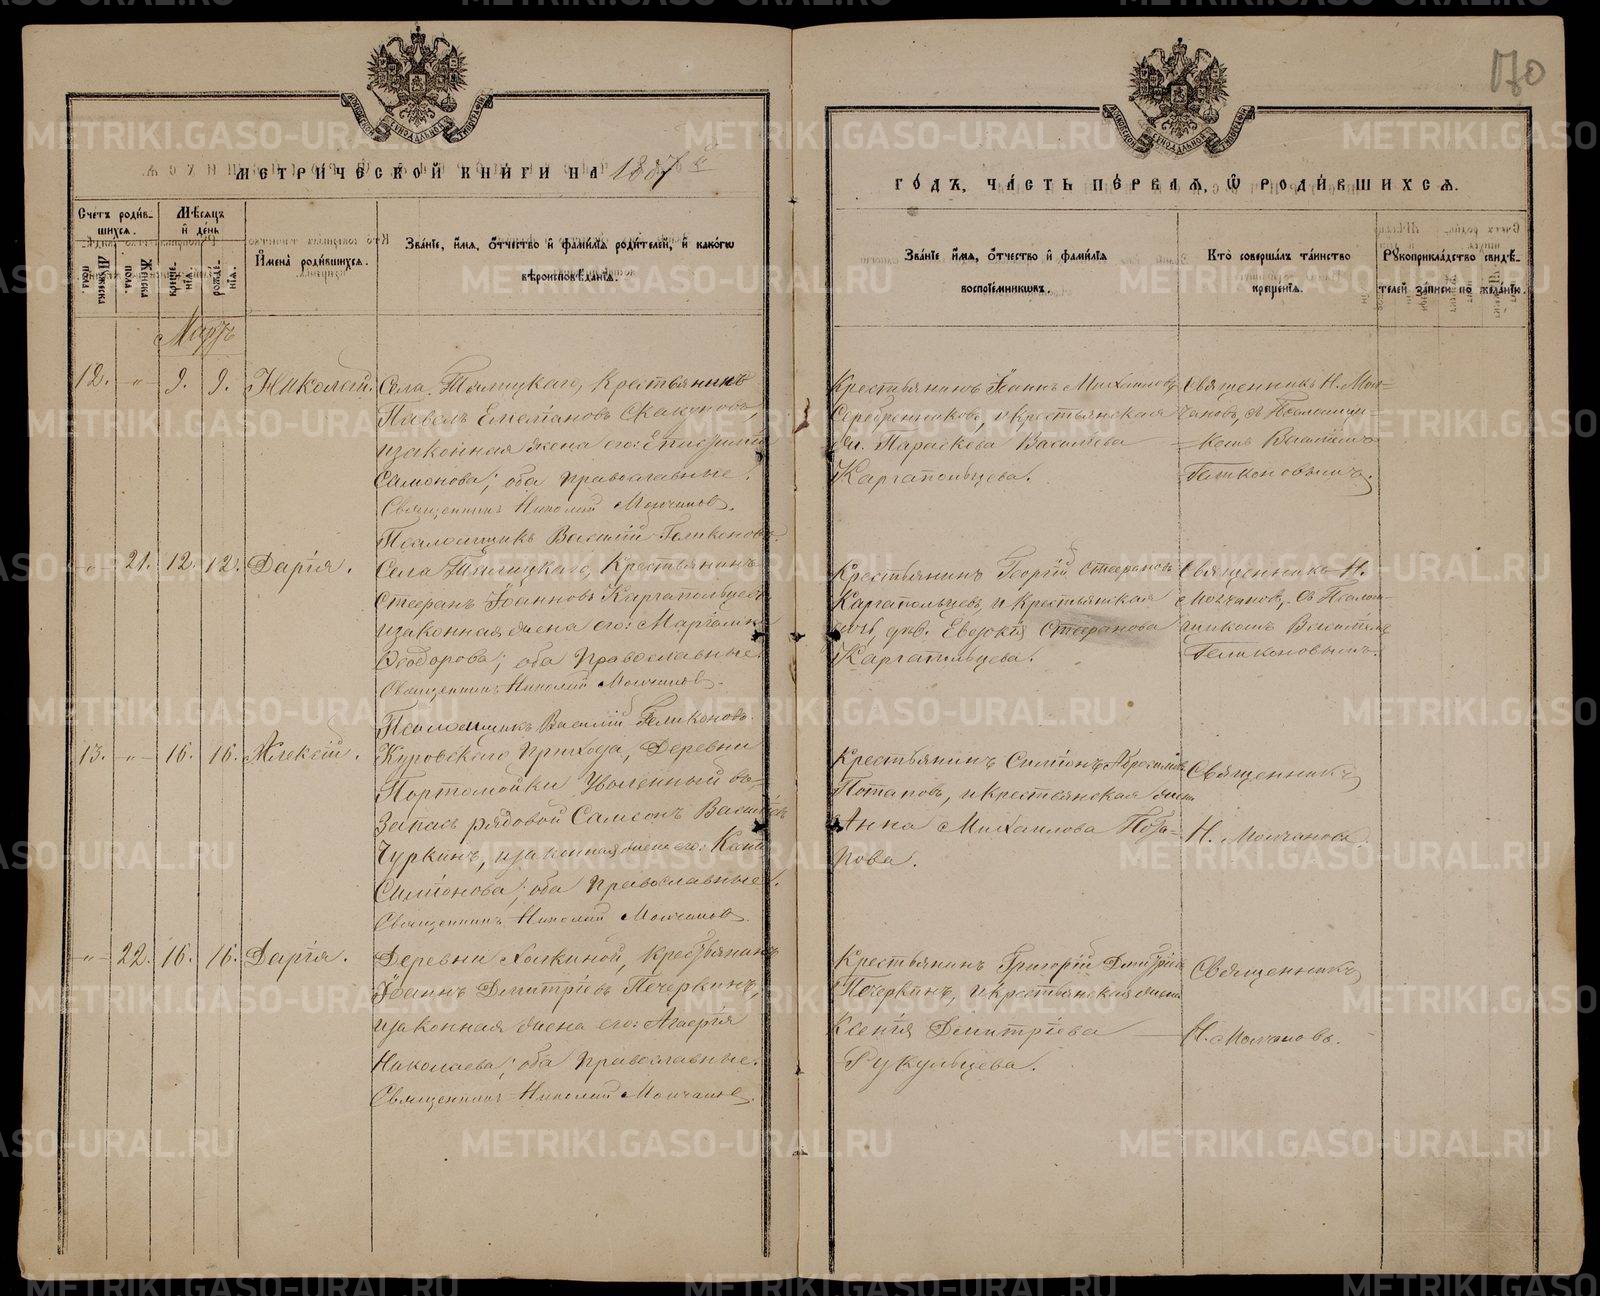 170
МЕТРИ́ЧЕСКОЙ КНИ́ГИ НА 1887й
ГО́ДЪ, ЧА́СТЬ ПЕ́РВАЯ, Ѽ РОДИ́ВШИХСЯ.
Сче́тъ роди́в-
шихся.
Мужеска
пола.
Женска
пола.
Мѣ́сяцъ
и҆ день
креще-
нія.
рожде-
нія.
И҆мена̀ роди́вшихся.
Зва́ніе, и҆́мя, о҆́тчество и҆ фами́лія роди́телей, и҆ како́гѡ
вѣроисповѣ́данія.
Зва́ніе и҆́мя, о҆́тчество и҆ фами́лія
воспріе́мниковъ.
Кто̀ соверша́лъ та́инство
креще́нія.
Рꙋкоприкла́дство свидѣ́-
телей за́писи по жела́нію.
Мартъ
12. -„- 9. 9. Николай.
Села Талицкаго, Крестьянинъ
Павелъ Емеліановъ Скакуновъ,
изаконная жена его:
Самонова; оба православные.
Священникъ Николай Молчановъ.
Псаломщикъ Василій Геликоновъ.
Крестьянинъ Іоаннъ Михаиловъ
Серебренниковъ, и крестьянская
Параскева Васильева
Каргапольцева.
Священникъ Н. Мол-
чановъ, съ Псаломщи-
комъ Василіемъ
Геликоновымъ.
-„- 21. 12. 12. Дарія.
Села Талицкаго, Крестьянинъ
Стефанъ Іоанновъ Каргапольцевъ
изаконная жена его:
Ѳеодорова; оба Православные.
Священникъ Николай Молчановъ.
Псаломщикъ Василій Геликоновъ.
Крестьянинъ Георгій Стефановъ
Каргапольцевъ, и крестьянская
дочь, дѣв. Евдокія Стефанова
Каргапольцева.
Священникъ Н.
Молчановъ, съ Псалом-
щикомъ Василіемъ
Геликоновымъ.
13. -„- 16. 16. Алексій.
Куровскаго Прихода, Деревни
Портомойки Уволенный въ
Запасъ рядовой Самсонъ Васильевъ
Чуркинъ, изаконная жена его:
Симіонова; оба Православные.
Священникъ Николай Молчановъ.
Крестьянинъ Симіонъ
Потаповъ, и крестьянская жена
Анна Михаилова Пота-
пова.
Священникъ
Н. Молчановъ.
-„- 22. 16. 16. Дарія.
Деревни Холкиной, Крестьянинъ
Іоаннъ Димитріевъ Печеркинъ,
изаконная жена его: Агафія
Николаева; оба Православные.
Священникъ Николай Молчановъ.
Крестьянинъ Григорій Димитріевъ
Печеркинъ, и крестьянская жена
Ксенія Димитріева
Рукульцева.
Священникъ
Н. Молчановъ.
METRIKI.GASO-URAL.RU